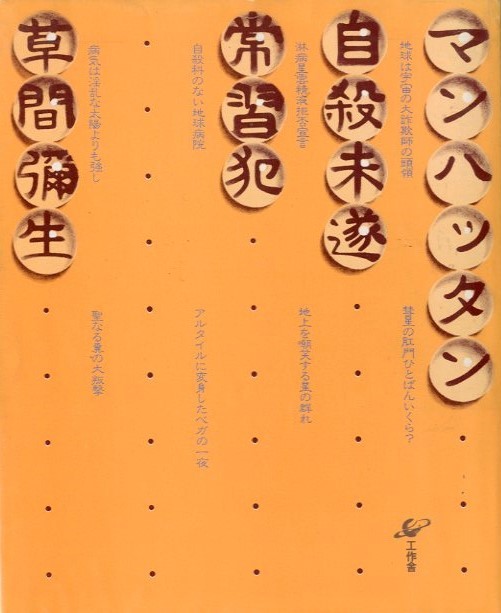 マンハッタン
地球は宇宙の大詐欺師の頭領
彗星の肛門ひとばんいくら?
自殺未遂
淋病星雲精液拒否宣言
地上を嘲笑する星の群れ
常習犯
自殺科のない地球病院
アルタイルに変身したベガの一夜
病気は淫乱な太陽よりも強し
聖なる糞の大砲撃
草間彌生
工作舎